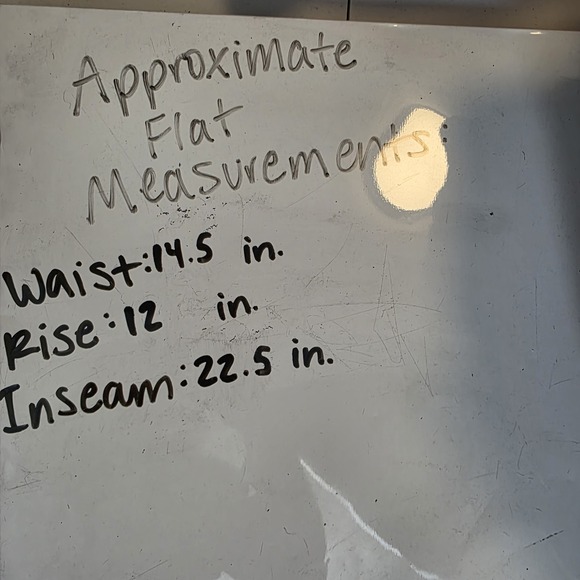 Approximate
Flat
Measurements:
Waist:14.5 in.
Rise:12 in.
Inseam:22.5 in.